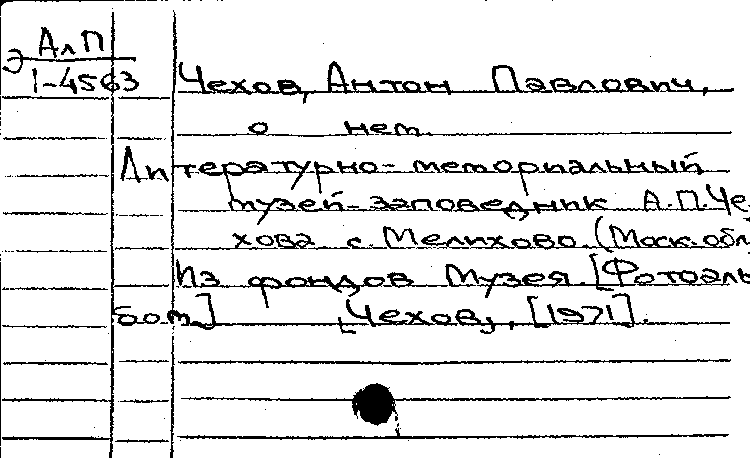 Э АлП
1-4563
Чехов, Антон Павлович,
о нем.
Литературно-мемориальный
музей-заповедник А.П.Че
хова с. Мелихово. (Моск. обл
Из фондов музея. [Фотоаль
бом.] [Чехов], [1971].